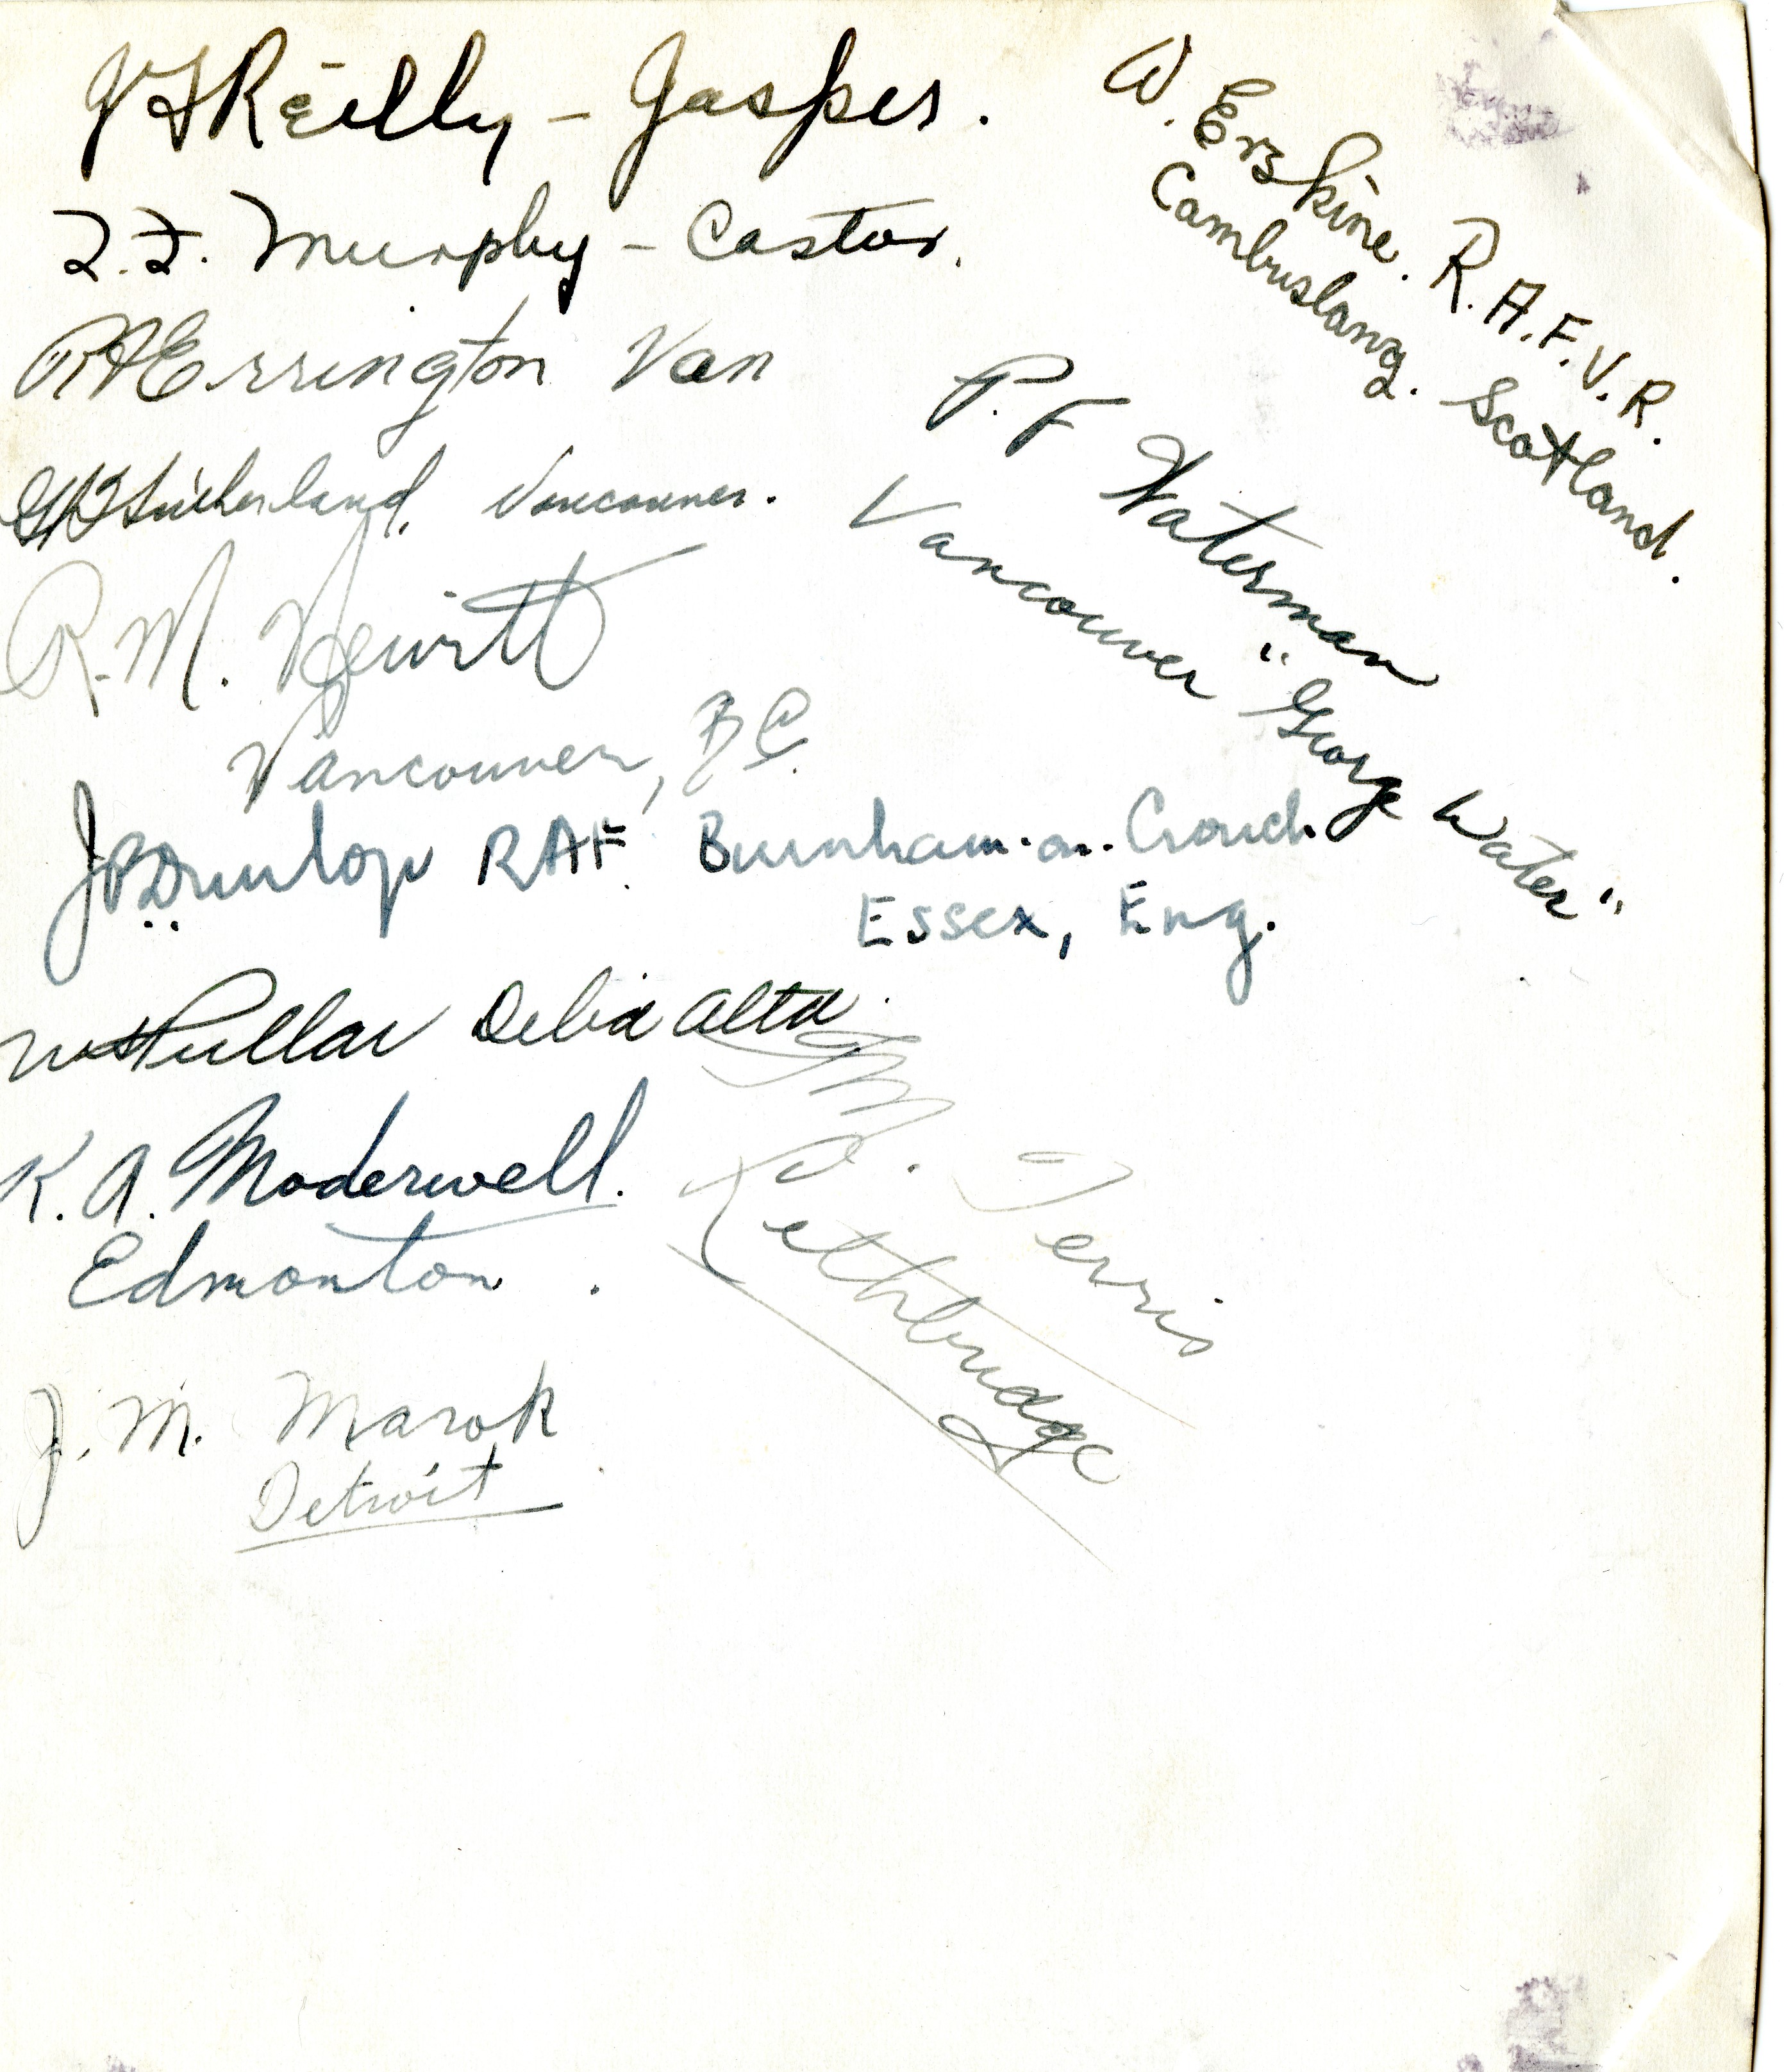 Reilly - Jasper.
Murphy - Castor.
Errington Van
Sutherland, Vancouver.
R. M. Hewitt
Vancouver, BC.
Dunlop RAF. Burnham-on-Crouch
Essex, Eng.
Pullar Delia Alta
K. A. Moderwell.
Edmonton.
J. M. Marok
Detroit
W. Erskine. R.A.F.V.R.
Cambuslang. Scotland.
P. F Waterman
Vancouver "George Water"
Ferris
Lethbridge